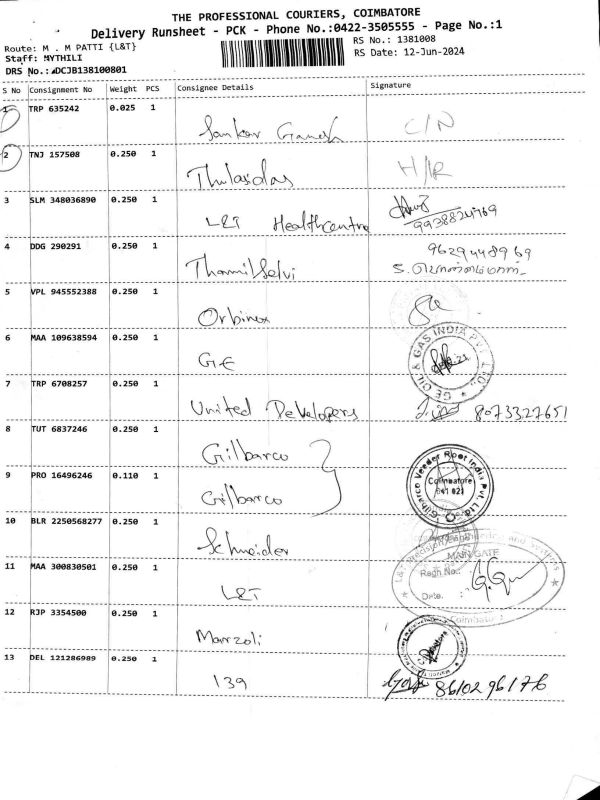 THE PROFESSIONAL COURIERS, COIMBATORE
Delivery Runsheet - PCK - Phone No.:0422-3505555 - Page No.:1
Route: M . M PATTI {L&T}
RS No.: 1381008
Staff: MYTHILI
RS Date: 12-Jun-2024
DRS No.: DCJB138100801
S No Consignment No Weight PCS Consignee Details Signature
1 TRP 635242 0.025 1
Sankar Ganesh C/N
2 TNJ 157508 0.250 1
Thulasidas H/R
3 SLM 348036890 0.250 1
L&T Healthcentre 9938824769
4 DDG 290291 0.250 1
ThamilSelvi 9629448969
5 VPL 945552388 0.250 1
Orbinox
6 MAA 109638594 0.250 1
GE
GE OIL & GAS INDIA PVT. LTD.
7 TRP 6708257 0.250 1
United Developers 8073327651
8 TUT 6837246 0.250 1
Gilbarco
9 PRO 16496246 0.110 1
Gilbarco
Gilbarco Veeder Root India Pvt. Ltd.
Coimbatore
641 021
10 BLR 2250568277 0.250 1
Schneider
11 MAA 300830501 0.250 1
L&T
MAIN GATE
Regn No.:
Date. :
Coimbatore
12 RJP 3354500 0.250 1
Marzoli
13 DEL 121286989 0.250 1
139 8610296176